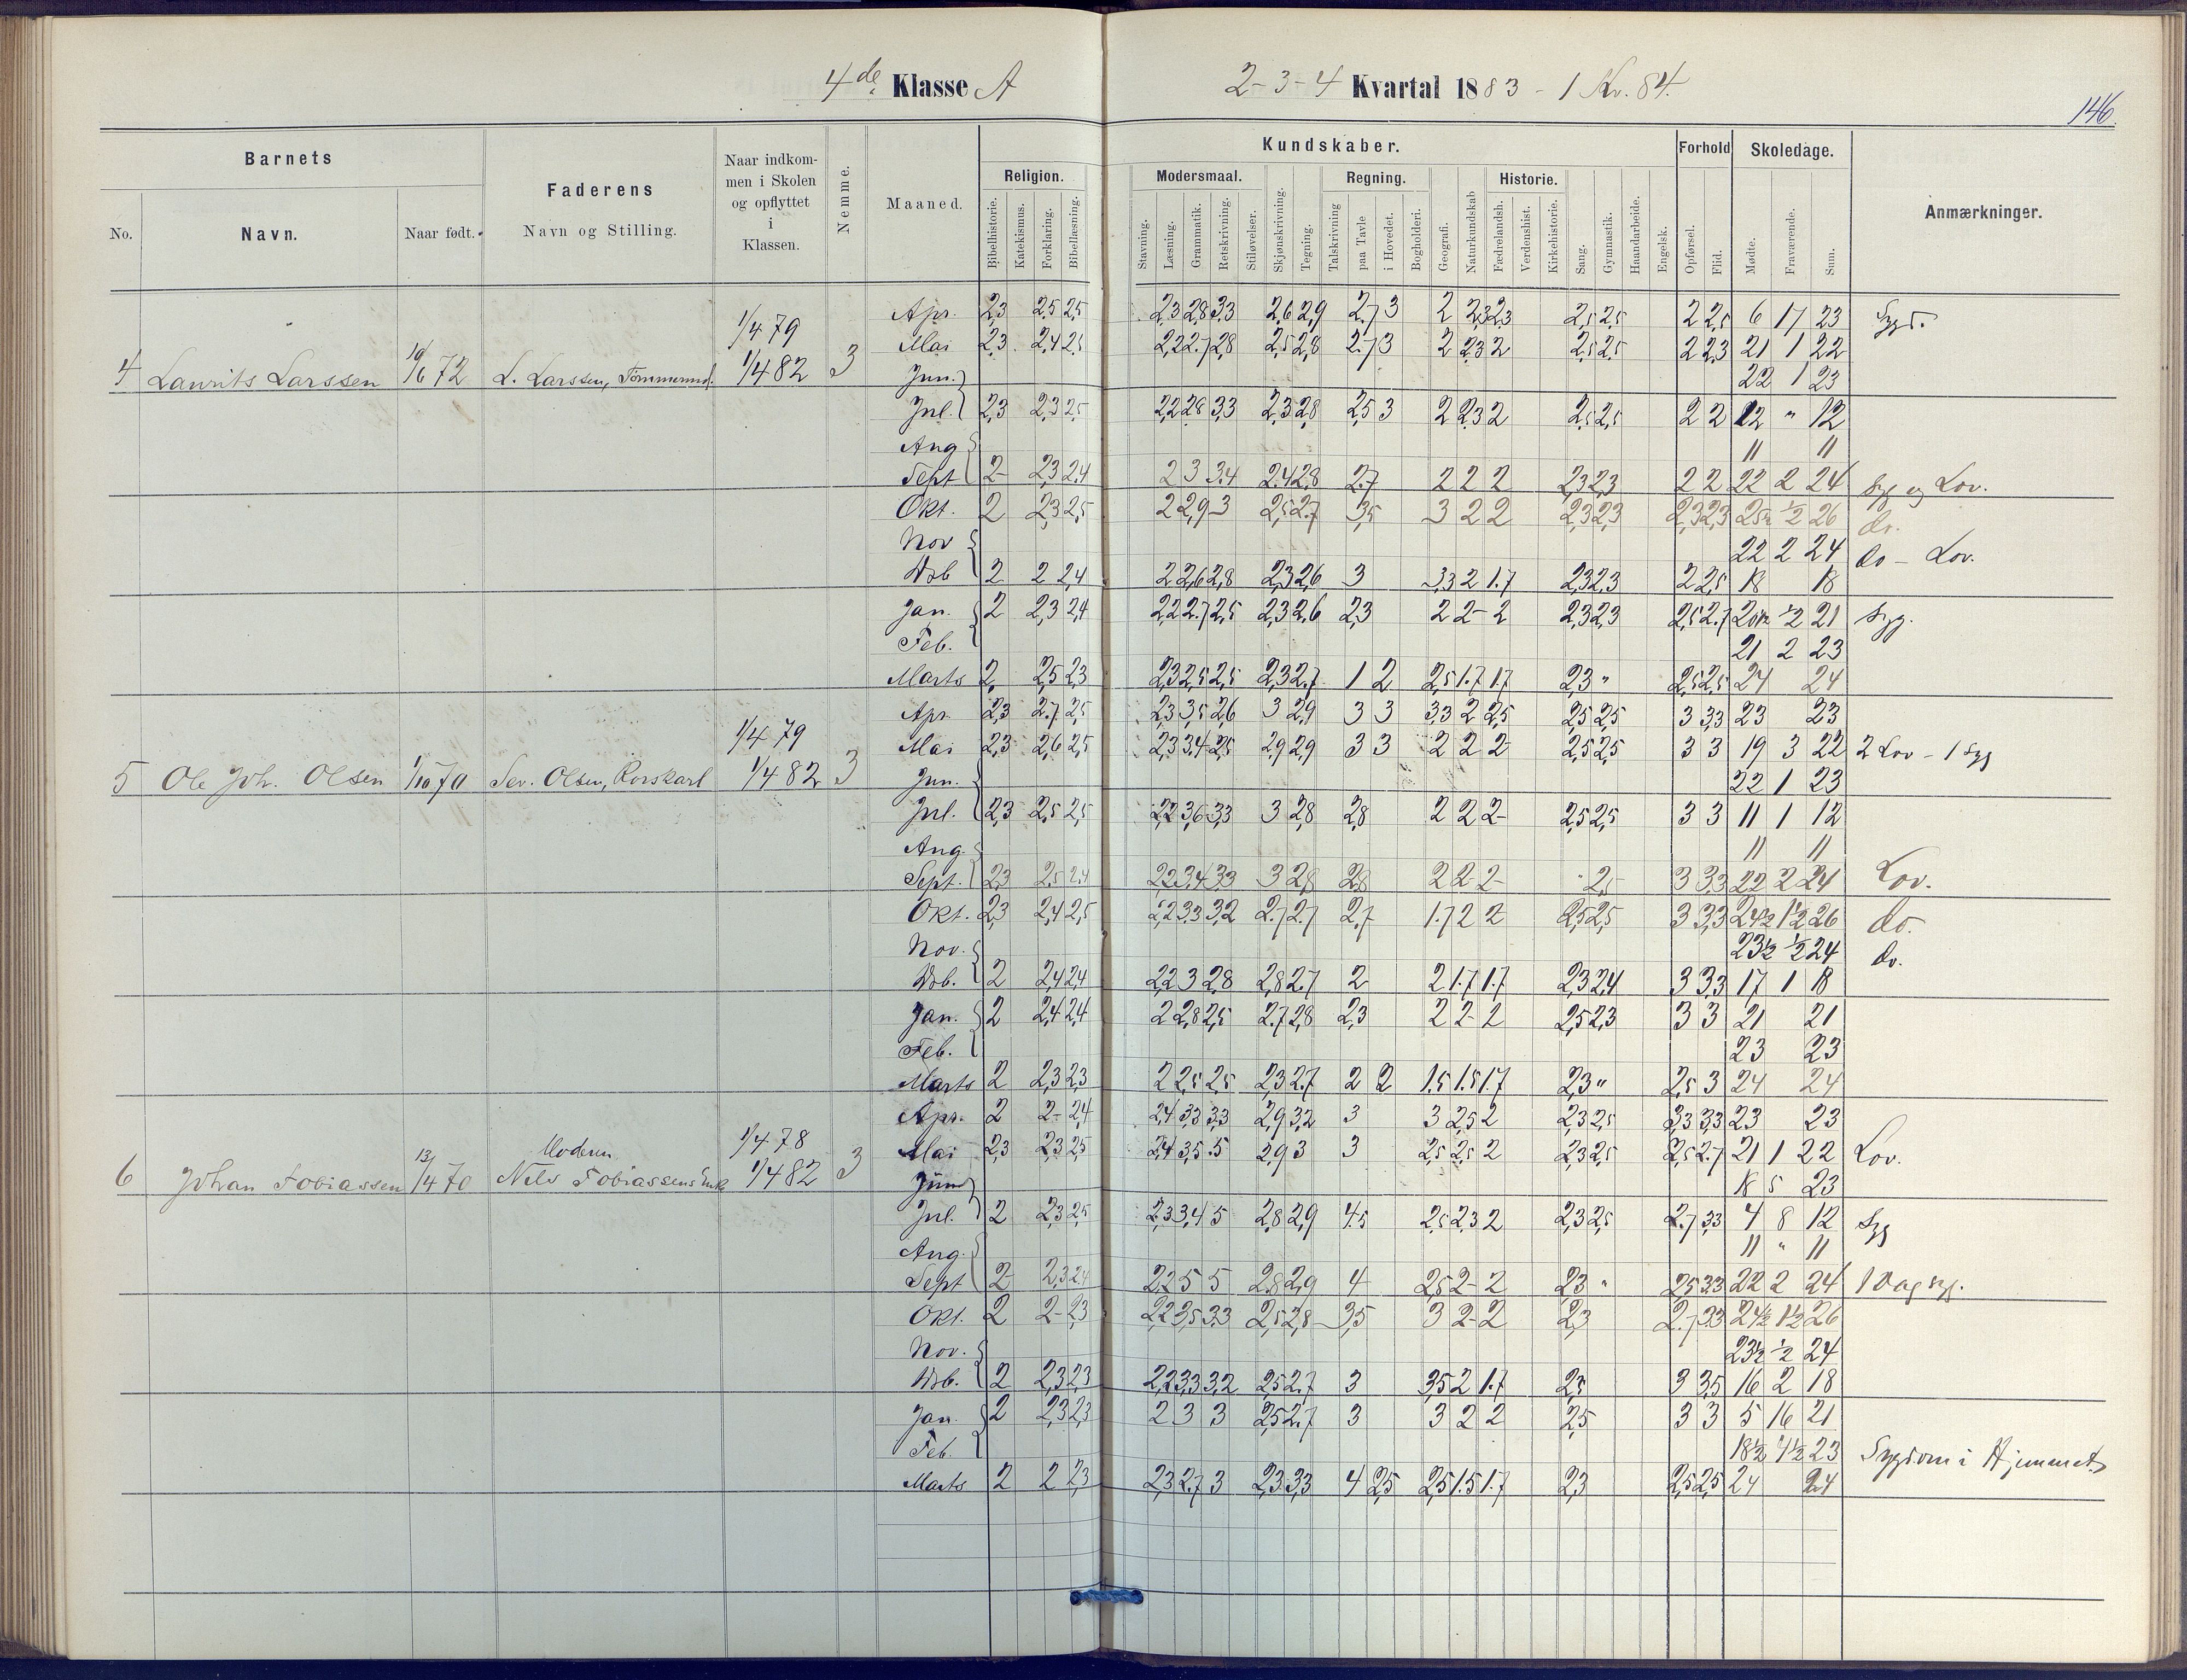 4de Klasse A
2-3-4 Kvartal 1883 - 1 Kv. 84.
146.
Barnets
No.
Navn.
Naar født.
Faderens
Navn og Stilling.
Naar indkom-
men i Skolen
og opflyttet
i
Klassen.
Nemme.
Maaned.
Kundskaber.
Religion.
Bibelhistorie.
Katekismus.
Forklaring.
Bibellæsning.
Modersmaal.
Stavning.
Læsning.
Grammatik.
Retskrivning.
Stiløvelser.
Skjønskrivning.
Tegning.
Regning.
Talskrivning
paa Tavle
i Hovedet.
Bogholderi.
Geografi.
Naturkundskab
Historie.
Fædrelandsh.
Verdenshist.
Kirkehistorie.
Sang.
Gymnastik.
Haandarbeide.
Engelsk.
Forhold
Opførsel.
Flid.
Skoledage.
Mødte.
Fraværende.
Sum.
Anmærkninger.
4 Laurits Larssen 72 L. Larssen, 1/4 79 1/4 82 3
Apr. 2,3 2,5 2,5 2,3 2,8 3,3 2,6 2,9 2,7 3 2 2,3 2,3 2,5 2,5 2 2,5 6 17 23
Mai 2,3 2,4 2,5 2,2 2,7 2,8 2,5 2,8 2,7 3 2 2,3 2 2,5 2,5 2 2,3 21 1 22
Jun. 22 1 23
Jul. 2,3 2,3 2,5 2,2 2,8 3,3 2,3 2,8 2,5 3 2 2,3 2 2,5 2,5 2 2 12 " 12
Aug 11 11
Sept 2 2,3 2,4 2 3 3,4 2,4 2,8 2,7 2 2 2 2,3 2,3 2 2 22 2 24 Syg og Lov.
Okt. 2 2,3 2,5 2 2,9 3 2,5 2,7 3,5 3 2 2 2,3 2,3 2,3 2,3 25½ ½ 26 do.
Nov 22 2 24 do - Lov.
Dcb 2 2 2,4 2 2,6 2,8 2,3 2,6 3 3,3 2 1,7 2,3 2,3 2 2,5 18 18
Jan. 2 2,3 2,4 2,2 2,7 2,5 2,3 2,6 2,3 2 2 2 2,3 2,3 2,5 2,7 20½ ½ 21 Syg.
Feb. 21 2 23
Marts 2 2,5 2,3 2,3 2,5 2,5 2,3 2,7 1 2 2,5 1,7 1,7 2,3 " 2,5 2,5 24 24
5 Ole Joh. Olsen 1/10 70 Sev. Olsen, Rorskarl 1/4 79 1/4 82 3
Apr 2,3 2,7 2,5 2,3 3,5 2,6 3 2,9 3 3 3,3 2 2,5 2,5 2,5 3 3,3 23 23
Mai 2,3 2,6 2,5 2,3 3,4 2,5 2,9 2,9 3 3 2 2 2 2,5 2,5 3 3 19 3 22 2 Lov - 1 Syg
Jun. 22 1 23
Jul. 2,3 2,5 2,5 2,2 3,6 3,3 3 2,8 2,8 2 2 2 2,5 2,5 3 3 11 1 12
Aug. 11 11
Sept. 2,3 2,5 2,4 2,2 3,4 3,3 3 2,8 2,8 2 2 2 2,5 3 3,3 22 2 24 Lov.
Okt. 2,3 2,4 2,5 2,2 3,3 3,2 2,7 2,7 2,7 1,7 2 2 2,5 2,5 3 3,3 24½ 1½ 26 do.
Nov. 23½ ½ 24 do.
Dcb. 2 2,4 2,4 2,2 3 2,8 2,8 2,7 2 2 1,7 1,7 2,3 2,4 3 3,3 17 1 18
Jan. 2 2,4 2,4 2 2,8 2,5 2,7 2,8 2,3 2 2 2 2,5 2,3 3 3 21 21
Feb. 23 23
Marts 2 2,3 2,3 2 2,5 2,5 2,3 2,7 2 2 1,5 1,5 1,7 2,3 " 2,5 3 24 24
6 Johan Tobiassen 13/4 70 Moderen Nils Tobiassens Enke 1/4 78 1/4 82 3
Apr. 2 2 2,4 2,4 3,3 3,3 2,9 3,2 3 3 2,5 2 2,3 2,5 3,3 3,3 23 23
Mai 2,3 2,3 2,5 2,4 3,5 5 2,9 3 3 2,5 2,5 2 2,3 2,5 2,5 2,7 21 1 22 Lov.
Juni 18 5 23
Jul. 2 2,3 2,5 2,3 3,4 5 2,8 2,9 4,5 2,5 2,3 2 2,3 2,5 2,7 3,3 4 8 12 Syg
Aug. 11 " 11
Sept 2 2,3 2,4 2,2 5 5 2,8 2,9 4 2,5 2 2 2,3 " 2,5 3,3 22 2 24 1 Dag syg.
Okt. 2 2 2,3 2,2 3,5 3,3 2,5 2,8 3,5 3 2 2 2,3 2,7 3,3 24½ 1½ 26
Nov. 23½ ½ 24
Dcb. 2 2,3 2,3 2,2 3,3 3,2 2,5 2,7 3 3,5 2 1,7 2,5 3 3,5 16 2 18
Jan. 2 2,3 2,3 2 3 3 2,5 2,7 3 3 2 2 2,5 3 3 5 16 21
Feb. 18½ 4½ 23 Sygdom i Hjemmet
Marts 2 2 2,3 2,3 2,7 3 2,3 3,3 4 2,5 2,5 1,5 1,7 2,3 2,5 2,5 24 24